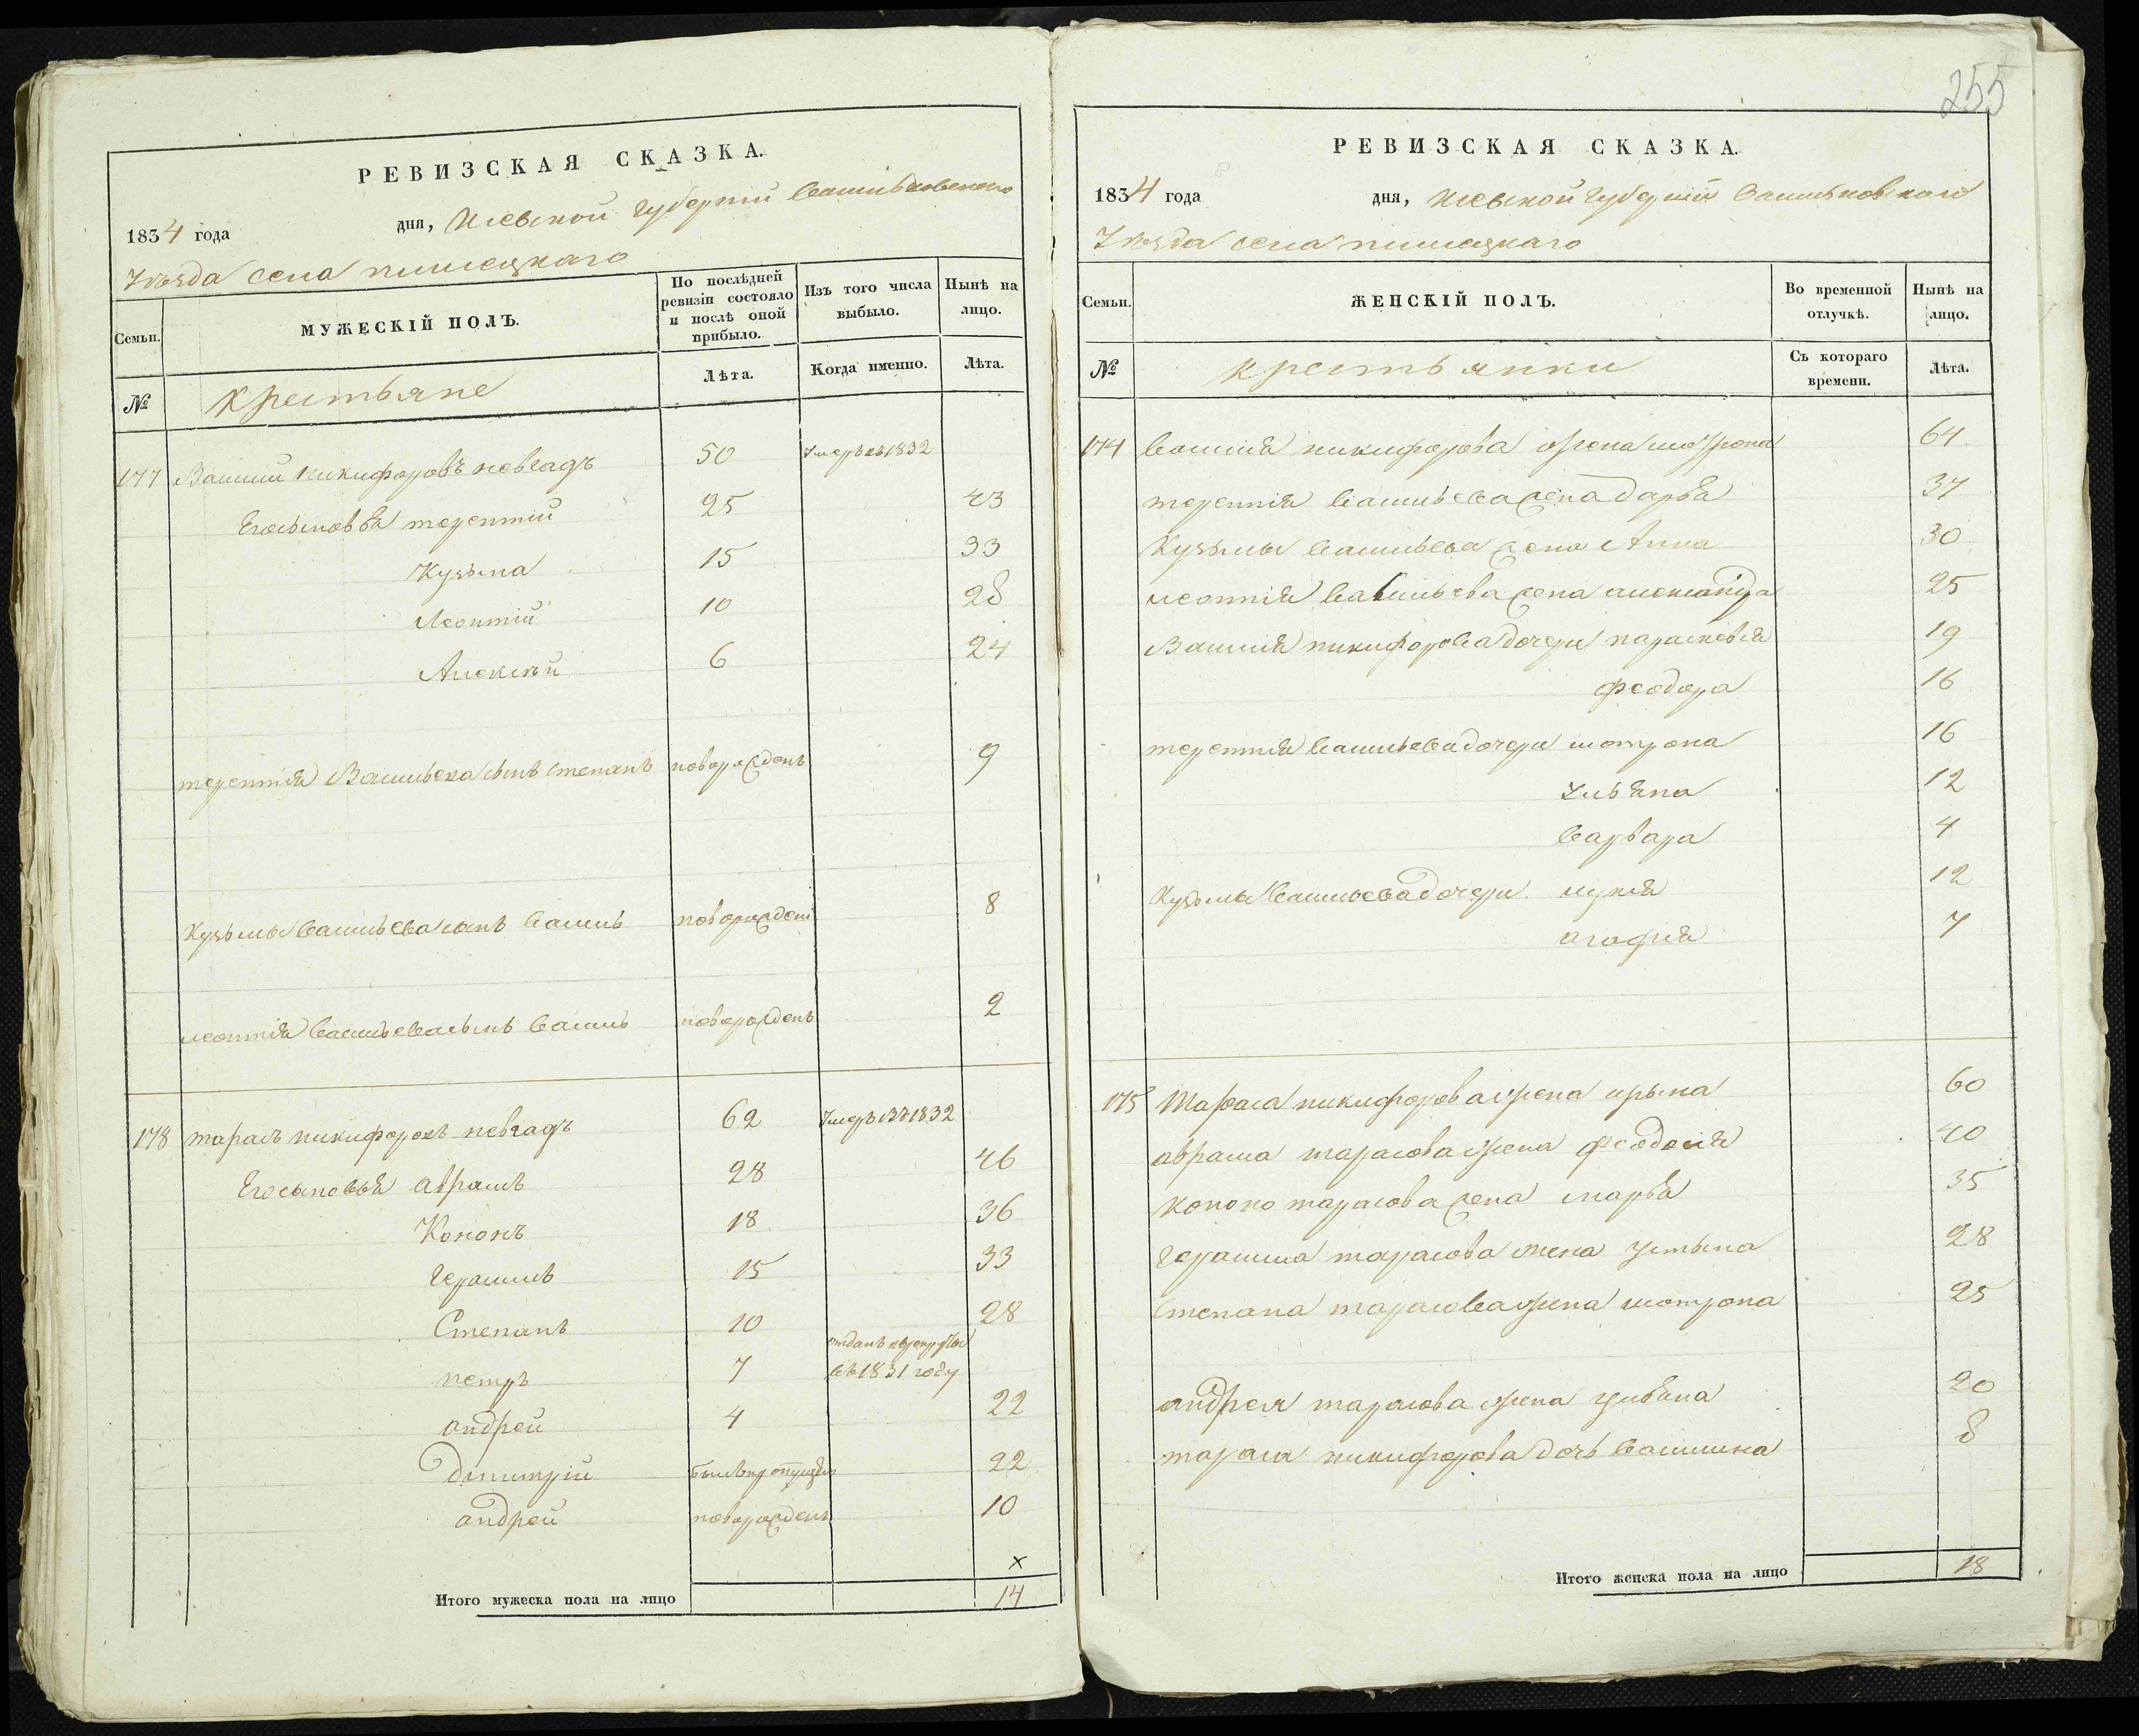 255
РЕВИЗСКАЯ СКАЗКА.
1834 года дня, Киевской губернии Васильковского
Уезда села пилиецкаго
Семьи. МУЖЕСКІЙ ПОЛЪ. По послѣдней ревизіи состояло и послѣ оной прибыло. Изъ того числа выбыло. Нынѣ на лицо.
№ крестьяне Лѣта. Когда именно. Лѣта.
177 Василий никифоровъ невгадъ 50 Умеръ въ 1832
Егосыновья терентій 25 43
Кузьма 15 33
Леонтій 10 28
Алексѣй 6 24
терентія Васильева сынъ степанъ новорожденъ 9
Кузьмы Васильева сынъ Василь новорожденъ 8
леонтія Васильева сынъ Василь новорожденъ 2
178 тарасъ никифоровъ невгадъ 62 Умеръ въ 1832
Егосыновья аврамъ 28 46
Кононъ 18 36
Герасимъ 15 33
Степанъ 10 28
петръ 7 отданъ в рекруты въ 1831 году
андрей 4 22
Дмитрій былъ пропущенъ 22
андрей новорожденъ 10
х
Итого мужеска пола на лицо 14
РЕВИЗСКАЯ СКАЗКА.
1834 года дня, Киевской губерніи Васильковскаго
Уезда села пилиецкаго
Семьи. ЖЕНСКІЙ ПОЛЪ. Во временной отлучкѣ. Нынѣ на лицо.
№ крестьянки Съ котораго времени. Лѣта.
174 Василія никифорова жена мотрона 64
терентія Васильева жена дарья 37
Кузьмы Васильева жена Анна 30
леонтія Васильева жена александра 25
Василія никифорова дочери параскевія 19
феодора 16
терентія Васильева дочери мотрона 16
Ульяна 12
варвара 4
Кузьмы Васильева дочери лукія 12
агафия 7
175 Тараса никифорова жена ирына 60
аврама тарасова жена феодосія 40
конона тарасова жена марья 35
герасима тарасова жена устына 28
Степана тарасова жена мотрона 25
андрея тарасова жена ульяна 20
тараса никифорова дочь Василина 8
Итого женска пола на лицо 18